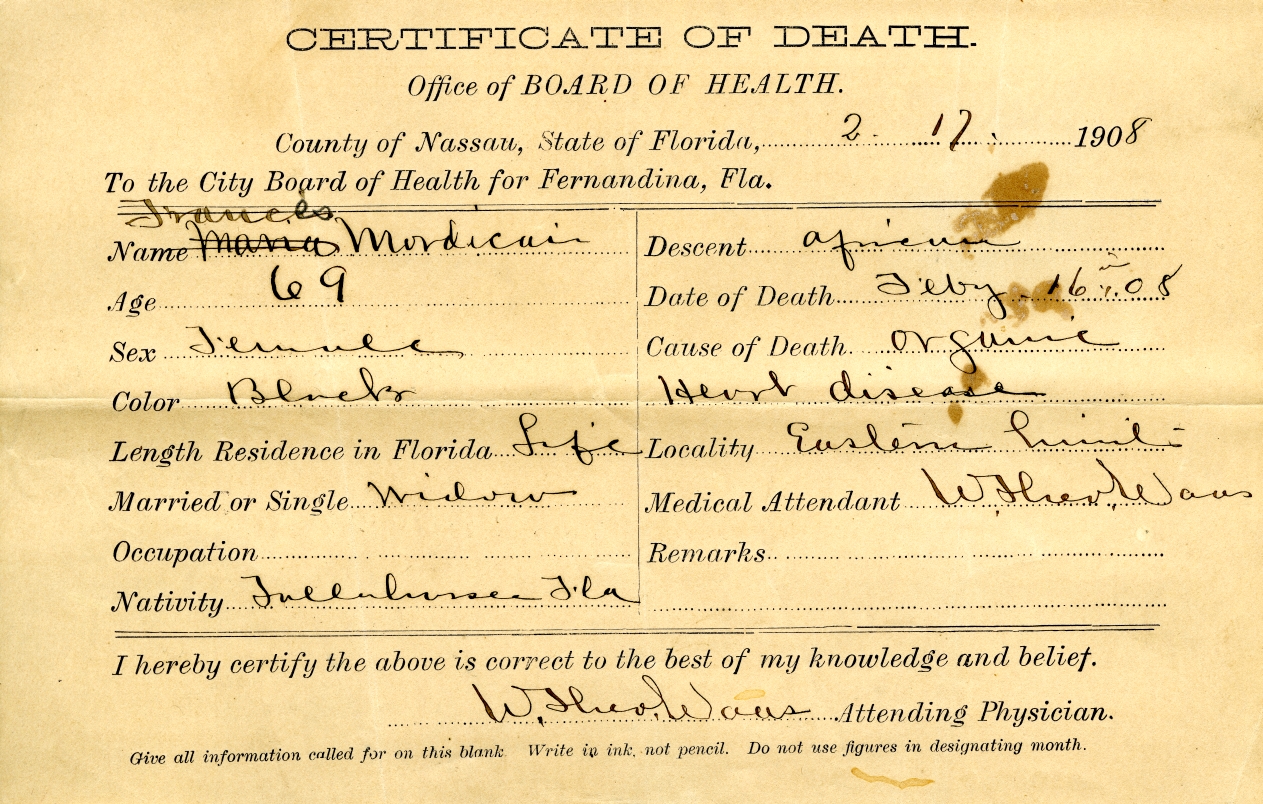 CERTIFICATE OF DEATH.
Office of BOARD OF HEALTH.
County of Nassau, State of Florida, 2. 17. 1908
To the City Board of Health for Fernandina, Fla.
Frances
Name Maria Mordicai
Age 69
Sex Female
Color Black
Length Residence in Florida Life
Married or Single Widow
Occupation
Nativity Tallahassee Fla
Descent African
Date of Death Feby 16 08
Cause of Death Organic
Heart disease
Locality Eastern limits
Medical Attendant W. Theo. Waas
Remarks
I hereby certify the above is correct to the best of my knowledge and belief.
W. Theo. Waas Attending Physician.
Give all information called for on this blank. Write in ink, not pencil. Do not use figures in designating month.